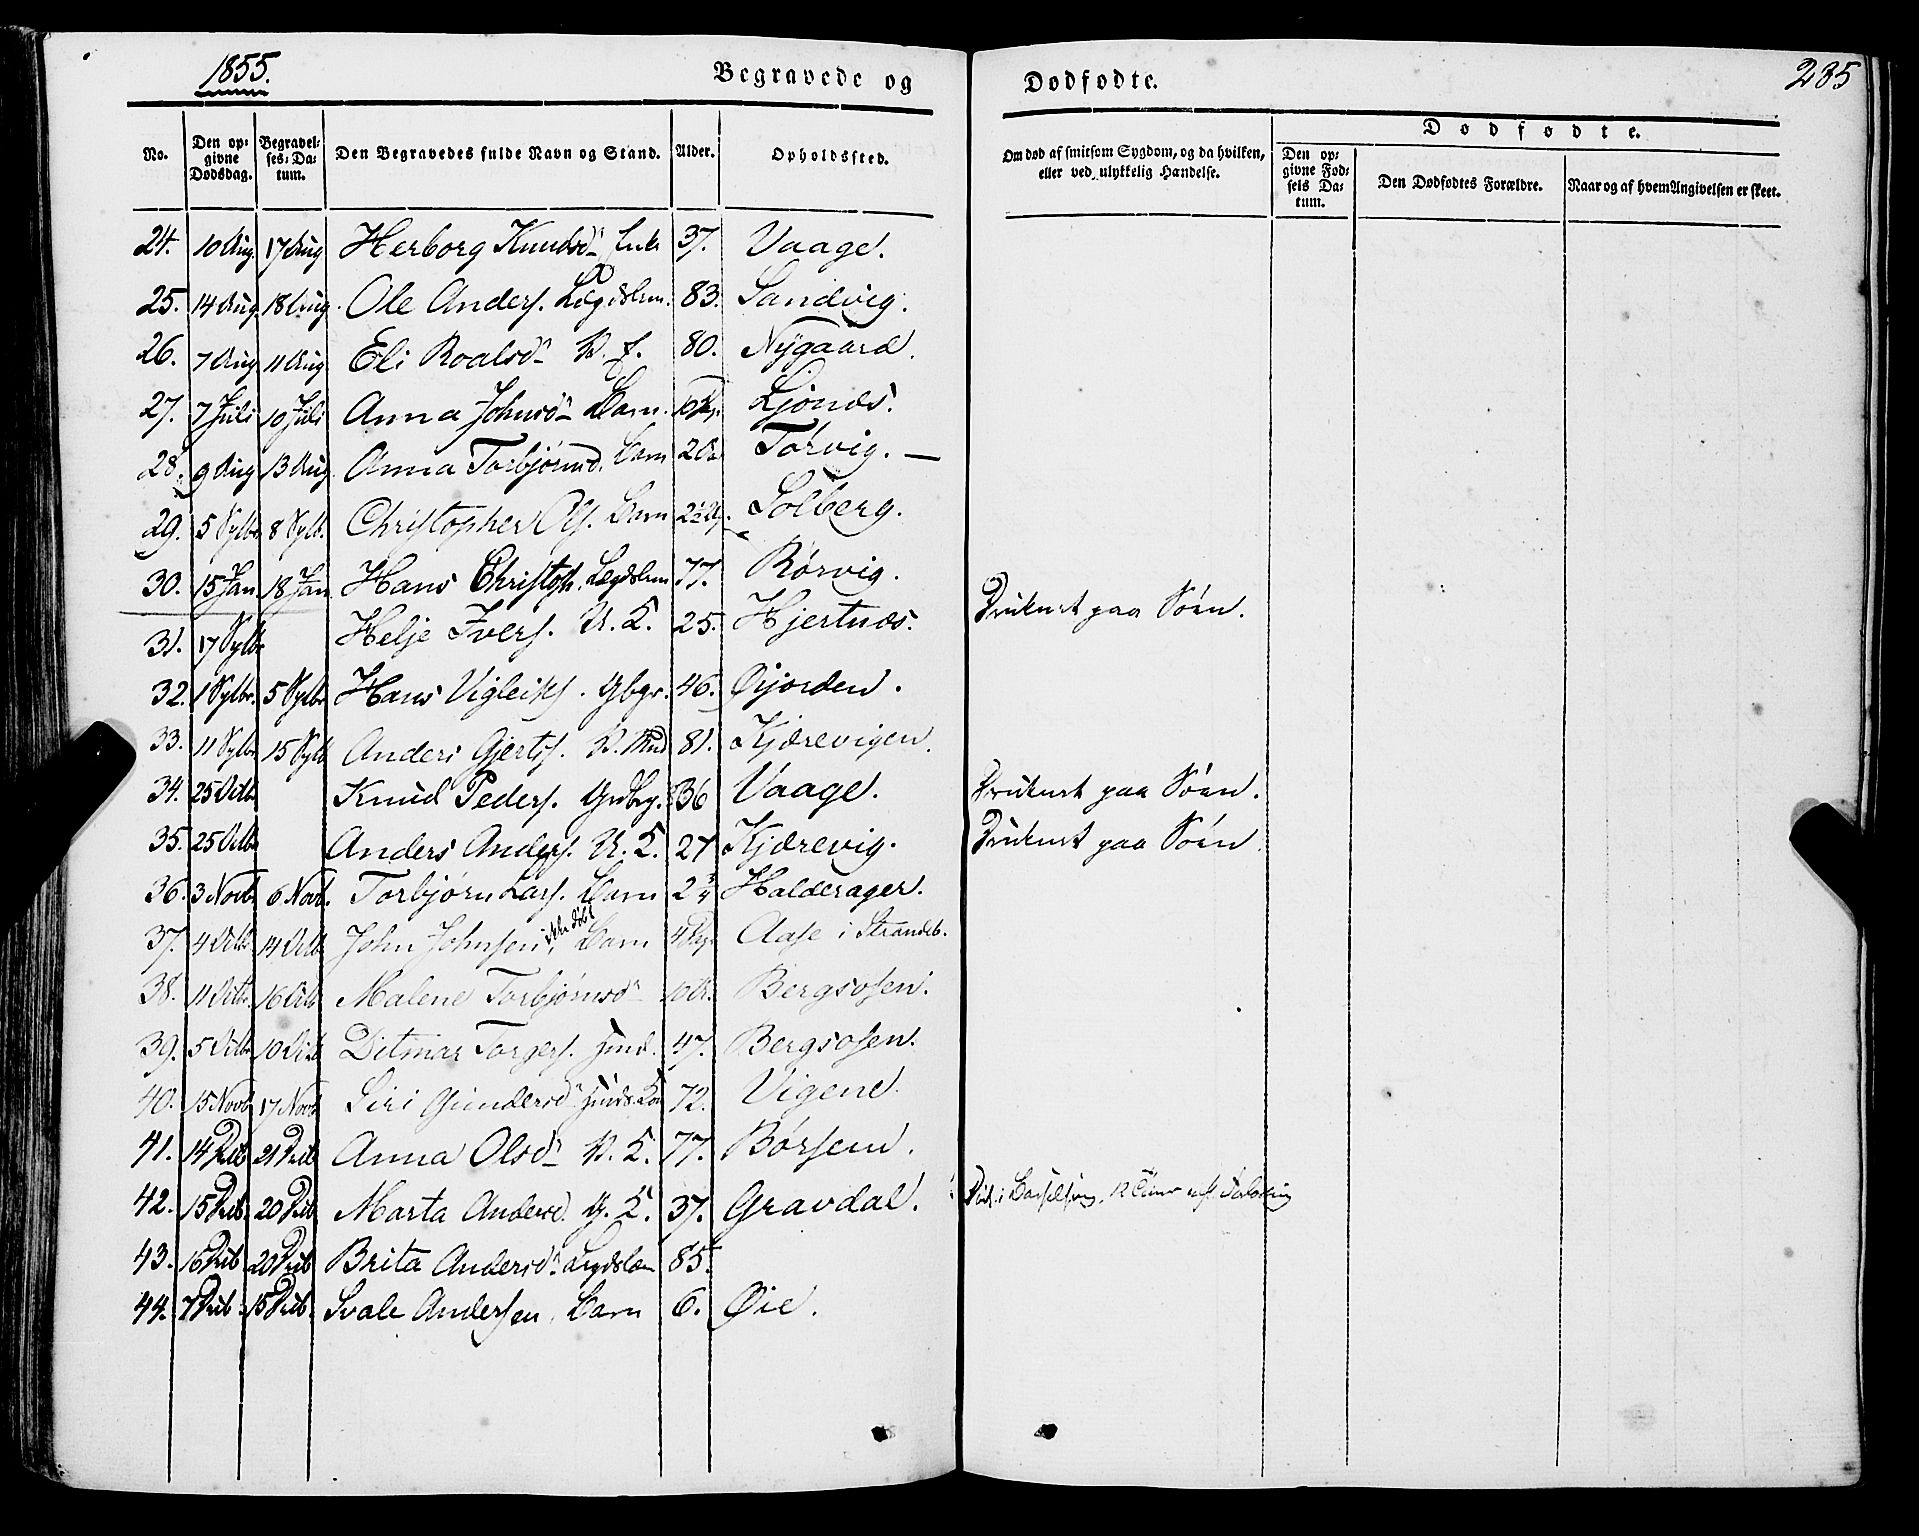 1855.
Begravede og Dødfødte.
235
No. Den opgivne Dødsdag. Begravelses-Datum. Den Begravedes fulde Navn og Stand. Alder. Opholdssted. Om død af smitsom Sygdom, og da hvilken, eller ved ulykkelig Hændelse. Dødfødte. Den opgivne Fødsels Datum. Den Dødfødtes Forældre. Naar og af hvem Angivelsen er skeet.
24. 10 Aug 17 Aug Herborg Knudsdr Enke 37. Vaage.
25. 14 Aug. 18 Aug. Ole Anders. Lægdslem. 83. Sandvig.
26. 7 Aug 11 Aug Eli Roalsdr K. f. 80. Nygaard.
27. 7 Juli 10 Juli Anna Johnsdr Barn. Ljonæs.
28. 9 Aug 13 Aug. Anna Torbjørnsd. Barn 2 Torvig. —
29. 5 Sptbr 8 Sptb. Christopher Ols. Barn 2½ Solberg.
30. 15 Jan 18 Jan Hans Christoph. Lægdslem 77. Rørvig.
31. 17 Sptbr Helje Ivers. U. K. 25. Hjertnæs. Druknet paa Søen.
32. 1 Sptbr. 5 Sptbr Hans Vigleiks. Gbgr. 46. Øijorden.
33. 11 Sptbr 15 Sptb Anders Gjerts. K. Mand 81. Kjærevigen.
34. 25 Octb Knud Peders. Grdbrg. 36 Vaage. Druknet paa Søen.
35. 25 Octbr Anders Anders. U. K. 27 Kjærevig. Druknet paa Søen.
36. 3 Novb 6 Novb. Torbjørn Lars. Barn 2¾ Halderager.
37. 4 Octb 14 Octb John Johnsen, ikke døbt Barn 4 Dg. Aase i Strandeb.
38. 11 Octbr. 16 Octb Malene Torbjørnsdr 10 Bergsosen.
39. 5 Octb 10 Octb Ditmar Torgers. Huusd. 47. Bergsosen.
40. 15 Novb 17 Novb Siri Gundersdr 72. Vigene.
41. 14 Decb 21 Decb Anna Olsdr K. K. 77. Børsem.
42. 15 Decb. 20 Decb Marta Andersd. G. K. 37. Gravdal. Død i Barselseng, 12 Timer eft. Forløsning
43. 16 Decb 20 Decb Brita Andersdr Lægdslem 85.
44. 7 Decb 15 Decb. Svale Andersen, Barn 6. Øie.